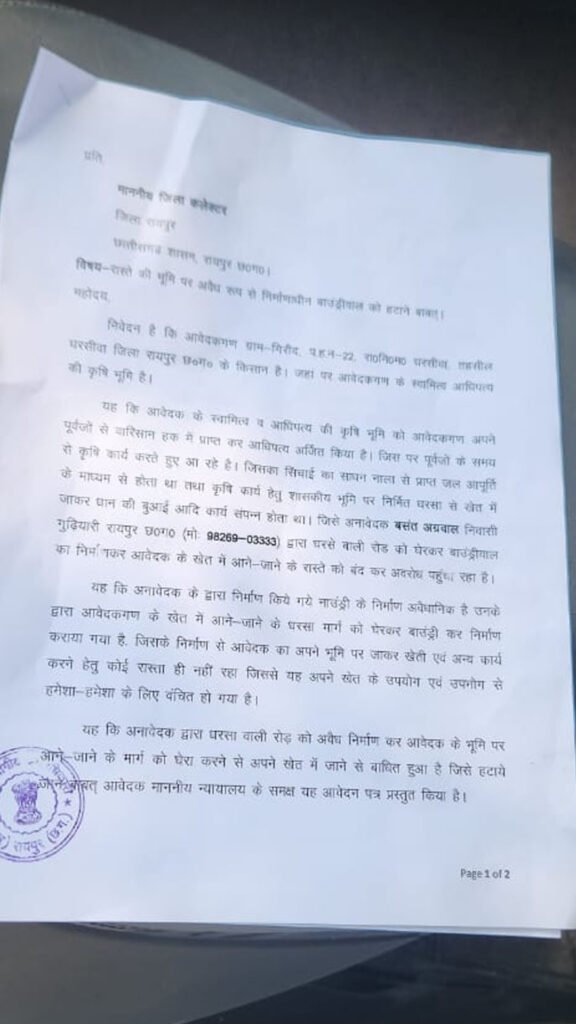 प्रति,
माननीय जिला कलेक्टर
जिला रायपुर
छत्तीसगढ शासन, रायपुर छ०ग०।
विषय–रास्ते की भूमि पर अवैध रूप से निर्माणाधीन बाउंड्रीवाल को हटाने बाबत्।
महोदय,
निवेदन है कि आवेदकगण ग्राम–गिरौद, प.ह.न–22, रा०नि०म० धरसीवा, तहसील
धरसीवा जिला रायपुर छ०ग० के किसान है। जहा पर आवेदकगण के स्वामित्व आधिपत्य
की कृषि भूमि है।
यह कि आवेदक के स्वामित्व व आधिपत्य की कृषि भूमि को आवेदकगण अपने
पूर्वजों से वारिसान हक में प्राप्त कर आधिपत्य अर्जित किया है। जिस पर पूर्वजों के समय
से कृषि कार्य करते हुए आ रहे है। जिसका सिंचाई का साधन नाला से प्राप्त जल आपूर्ति
के माध्यम से होता था तथा कृषि कार्य हेतु शासकीय भूमि पर निर्मित धरसा से खेत में
जाकर धान की बुआई आदि कार्य संपन्न होता था। जिसे अनावेदक बसंत अग्रवाल निवासी
गुढ़ियारी रायपुर छ०ग० (मो. 98269–03333) द्वारा धरसे वाली रोड को घेरकर बाउंड्रीवाल
का निर्माणकर आवेदक के खेत में आने–जाने के रास्ते को बंद कर अवरोध पहुंचा रहा है।
यह कि अनावेदक के द्वारा निर्माण किये गये नाउंड्री के निर्माण अवैधानिक है उनके
द्वारा आवेदकगण के खेत में आने–जाने के धरसा मार्ग को घेरकर बाउंड्री कर निर्माण
कराया गया है, जिसके निर्माण से आवेदक का अपने भूमि पर जाकर खेती एवं अन्य कार्य
करने हेतु कोई रास्ता ही नहीं रहा जिससे यह अपने खेत के उपयोग एवं उपभोग से
हमेशा–हमेशा के लिए वंचित हो गया है।
यह कि अनावेदक द्वारा धरसा वाली रोड़ को अवैध निर्माण कर आवेदक के भूमि पर
आने–जाने के मार्ग को घेरा करने से अपने खेत में जाने से बाधित हुआ है जिसे हटाये
जाने बाबत् आवेदक माननीय न्यायालय के समक्ष यह आवेदन पत्र प्रस्तुत किया है।
रायपुर (छ.ग.)
Page 1 of 2